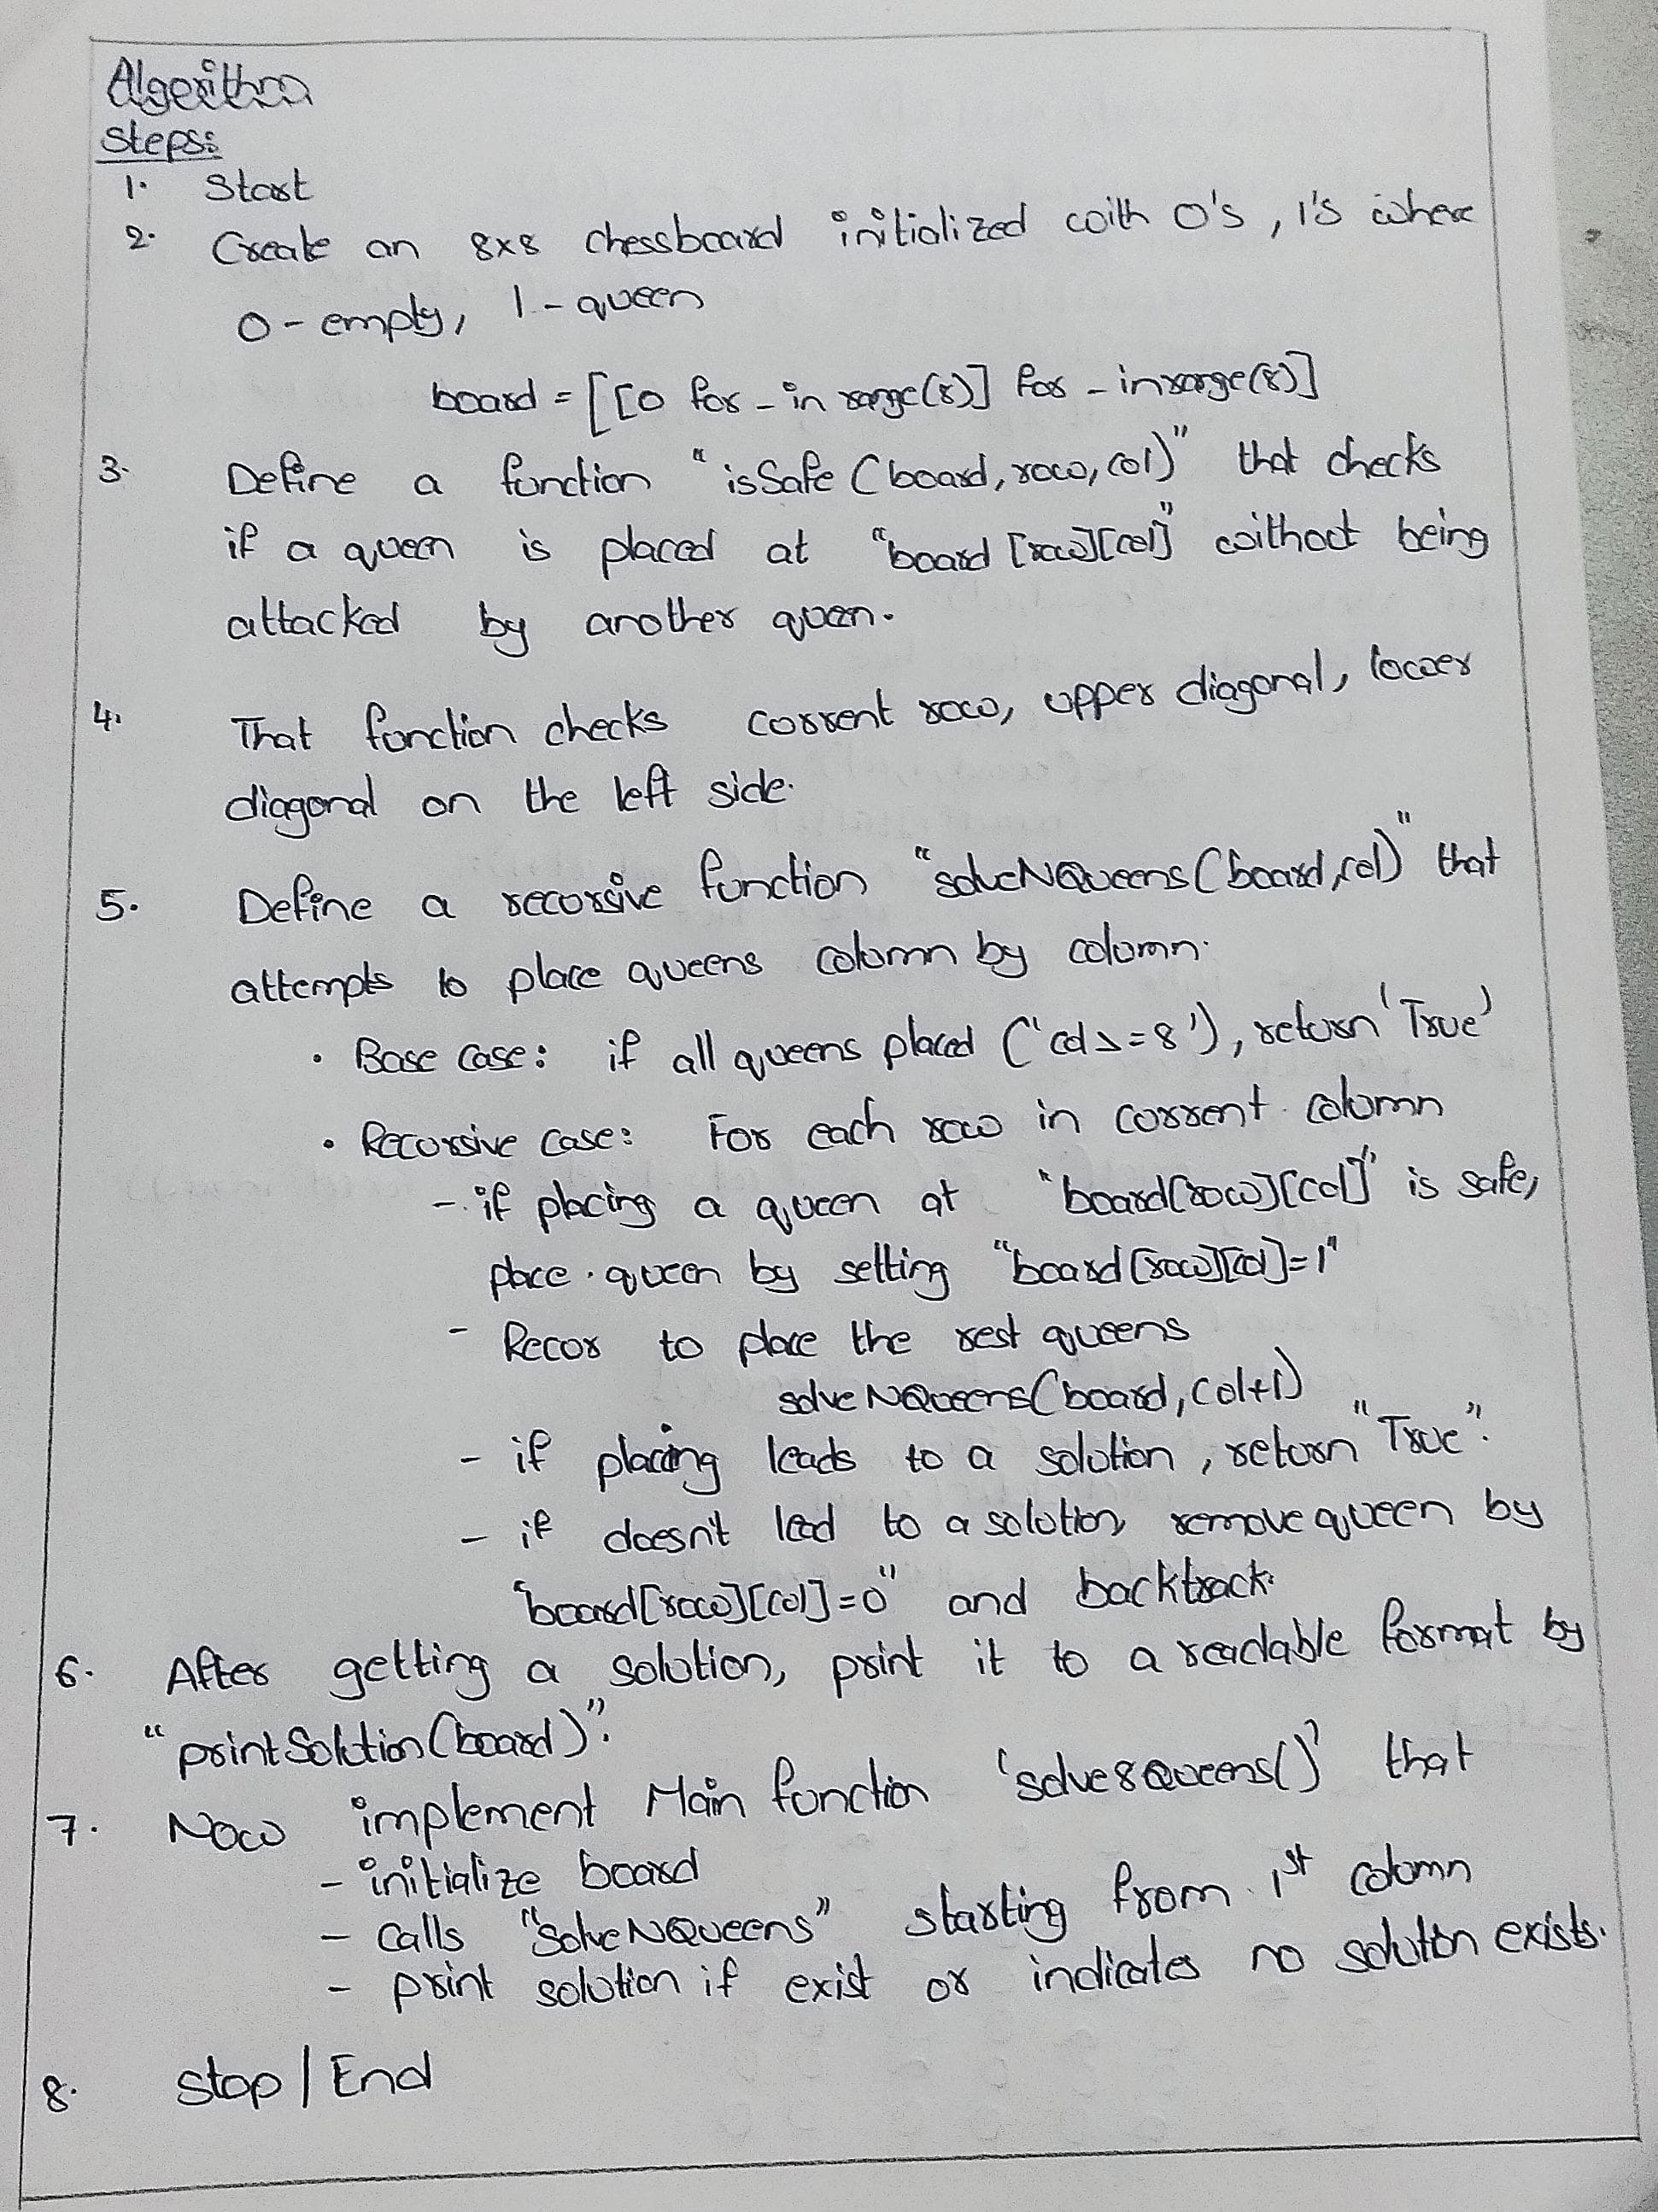 Algorithm
Steps:
1. Start
2. Create an 8x8 chessboard initialized with 0's, 1's where
0 - empty, 1 - queen
board = [[0 for _ in range(8)] for _ in range(8)]
3. Define a function "isSafe (board, row, col)" that checks
if a queen is placed at "board [row][col]" without being
attacked by another queen.
4. That function checks current row, upper diagonal, lower
diagonal on the left side.
5. Define a recursive function "solveNQueens (board, col)" that
attempts to place queens column by column.
• Base case: if all queens placed ('col >= 8'), return 'True'
• Recursive case: For each row in current column
- if placing a queen at "board[row][col]" is safe,
place queen by setting "board[row][col]=1"
- Recur to place the rest queens
solveNQueens(board, col+1)
- if placing leads to a solution, return "True".
- if doesn't lead to a solution, remove queen by
"board[row][col]=0" and backtrack.
6. After getting a solution, print it to a readable format by
"printSolution(board)".
7. Now implement Main function 'solve8Queens()' that
- initialize board
- calls "SolveNQueens" starting from 1st column
- print solution if exist or indicates no soluton exists.
8. Stop / End